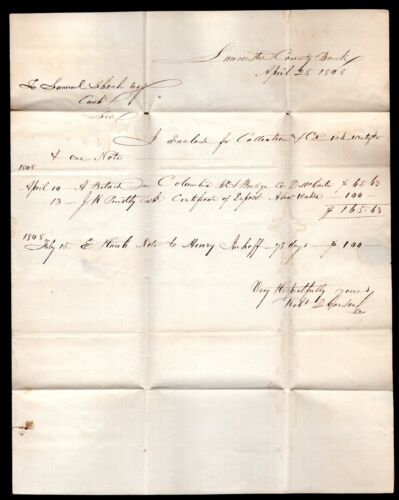 Lancaster County Bank
April 25 1848
To Samuel Shoch Esq
Cash
Sir
I Enclose for Collection
& one Note
1848
April 10 – A Bitard on Columbia Bk & Bridge Co $ 65.63
13 – J K Cash Certificate of Deposit 100 –
$ 165.63
1848
Feby 15 E Haub Note to Henry Imhoff – 95 days – $ 100 –
Very Respectfully yours
Robt D Carson